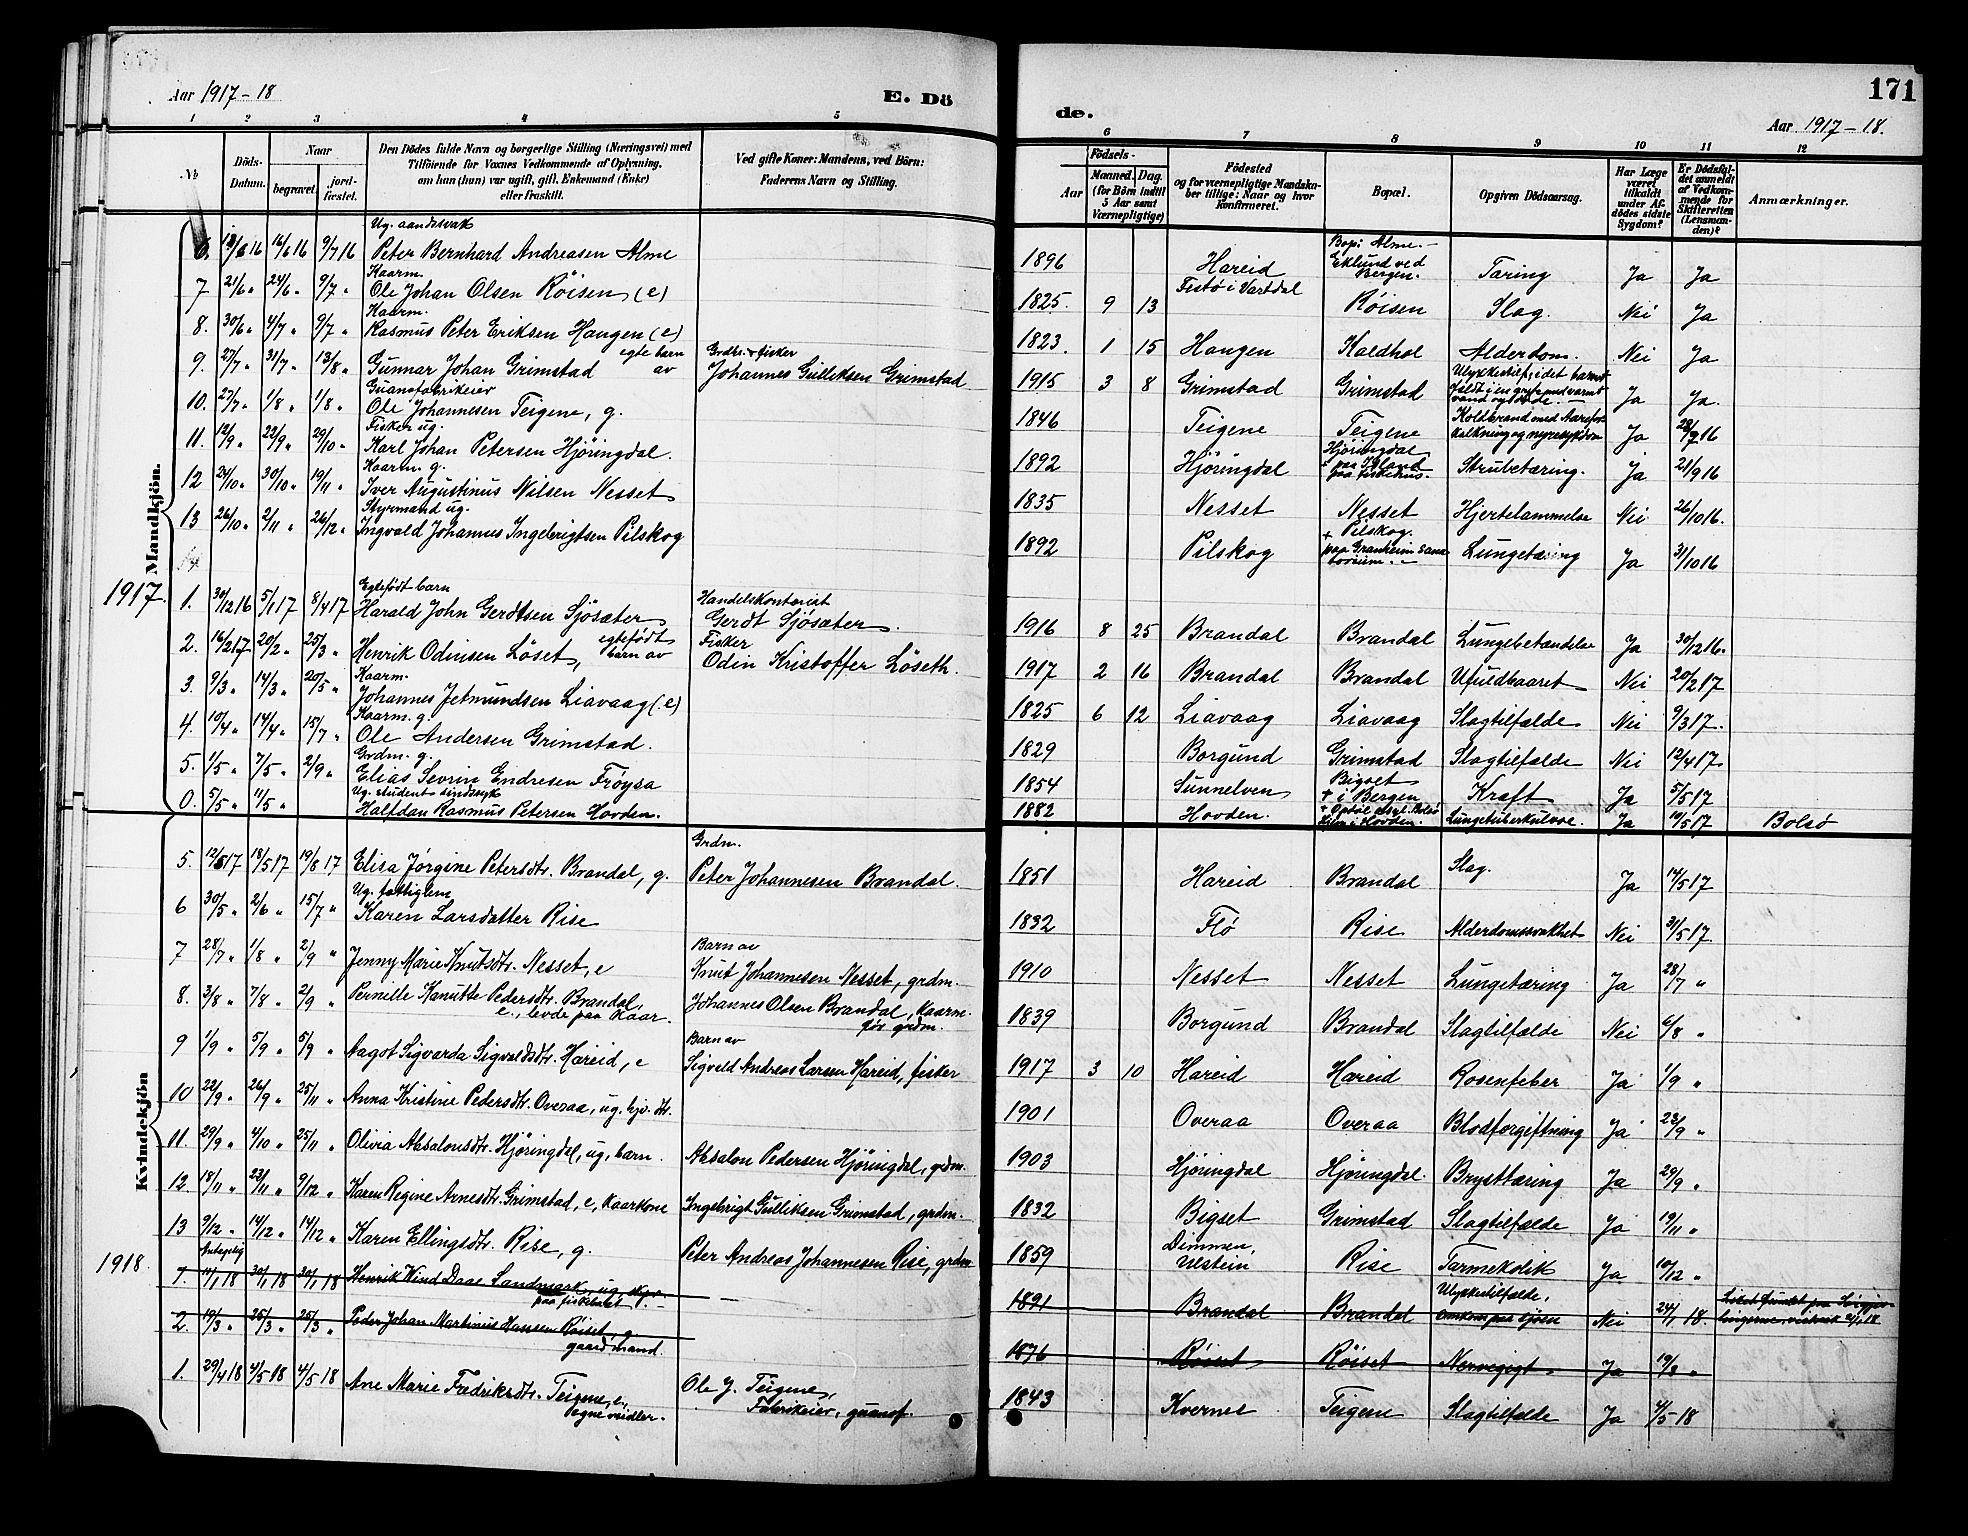 Aar 1917-18
E. Dö
de.
171
Aar 1917-18.
1 2 3 4 5
6 7 8 9 10 11 12
No
Döds-
Datum.
Naar
begravet.
jord-
fæstet.
Den Dödes fulde Navn og borgerlige Stilling (Næringsvei) med
Tilföiende for Voxnes Vedkommende af Oplysning,
om han (hun) var ugift, gift, Enkemand (Enke)
eller fraskilt.
Ved gifte Koner: Mandens, ved Börn:
Faderens Navn og Stilling.
Födsels-
Aar
Maaned. Dag.
(for Börn indtil
5 Aar samt
Værnepligtige)
Födested
og for værnepligtige Mandska-
ber tillige: Naar og hvor
konfirmeret.
Bopæl.
Opgiven Dödsaarsag.
Har Læge
været
tilkaldt
under Af-
dödes sidste
Sygdom?
Er Dödsfal-
det anmeldt
af Vedkom-
mende for
Skifteretten
(Lensman-
den)?
Anmærkninger.
Mandkjön.
Ug. aandssvak
16/6 16 9/7 16 Peter Bernhard Andreasen Alme 1896 Hareid Bop: Alme.- Eklund ved Bergen. Tæring Ja Ja
Kaarm.
7 21/6 " 24/6 " 9/7 " Ole Johan Olsen Röisen (e) 1825. 9 13 Fistö i Vartdal Röisen Slag. Nei Ja
Kaarm.
8. 30/6 " 4/7 " 9/7 " Rasmus Peter Eriksen Haugen (e) 1823. 1 15 Haugen Kaldhol Alderdom. Nei Ja
9. 27/7 " 31/7 " 13/8 " Gunnar Johan Grimstad egte barn av Grdbr. + fisker Johannes Gulliksen Grimstad 1915 3 8 Grimstad Grimstad Ulykkestilf, idet barnet faldt i en gryte med varmt vand og döde Ja Ja.
Guanofabrikeier
10. 27/7 " 1/8 " 1/8 " Ole Johannesen Teigene, g. 1846 Teigene Teigene Koldbrand med Aarefor- kalkning og nyresykdom Ja 28/7 16
Fisker ug.
11. 12/9 " 22/9 " 29/10 " Karl Johan Petersen Hjöringdal. 1892 Hjöringdal Hjöringdal + paa Island paa fiskerhus. Strubetæring. Ja 21/9 16
Kaarm. g.
12 24/10 " 30/10 " 19/11 " Iver Augustinus Nilsen Nesset 1835 Nesset Nesset Hjertelammelse Nei 26/10 16.
Styrmand ug.
13 26/10 " 2/11 " 26/12 " Ingvald Johannes Ingebrigtsen Pilskog 1892 Pilskog Pilskog. + paa Granheim Sana- torium. Lungetæring Ja 31/10 16
14
1917.
Egtefödt barn
1. 30/12 16 5/1 17 8/4 17 Harald John Gerdtsen Sjösæter Handelskontorist Gerdt Sjösæter. 1916 8 25 Brandal Brandal Lungebetændelse Ja 30/12 16.
2. 16/2 17 20/2 " 25/3 " Henrik Odinsen Löset, egtefödt barn av Fisker Odin Kristoffer Löseth. 1917 2 16 Brandal Brandal Ufuldbaaret Nei 20/2 17
Kaarm.
3. 9/3 " 14/3 " 20/5 " Johannes Jetmundsen Liavaag (e) 1825 6 12 Liavaag Liavaag Slagtilfælde Nei 9/3 17.
Kaarm. g.
4. 10/4 " 14/4 " 15/7 " Ole Andersen Grimstad. 1829 Borgund Grimstad Slagtilfælde Nei 12/4 17.
Grdm. g.
5. 1/5 " 7/5 " 2/9 " Elias Sevrin Endresen Fröysa 1854 Sunnelven Bigset + i Bergen Kraft Ja 5/5 17
Ug. student sindssyk
0. 5/5 " 11/5 " Halfdan Rasmus Petersen Hovden. 1882 Hovden. + Opdöl Asyl. Bolsö Hjem i Hovden. Lungetuberkulose. Ja 10/5 17 Bolsö
Kvindekjön
5. 12/5 17 18/5 17 19/8 17 Elisa Jörgine Petersdtr. Brandal, g. Grdm. Peter Johannesen Brandal. 1851 Hareid Brandal Slag. Ja 14/5 17
Ug. fattiglem
6 30/5 " 2/6 " 15/7 " Karen Larsdatter Rise 1832 Flö Rise Alderdomssvakhet Nei 31/5 17.
7 28/7 " 1/8 " 2/9 " Jenny Marie Knutsdtr. Nesset, e Barn av Knut Johannesen Nesset, grdm. 1910 Nesset Nesset Lungetæring Ja 28/7 "
8. 3/8 " 7/8 " 2/9 " Pernille Kanutte Pedersdtr. Brandal, e., levde paa Kaar. Johannes Olsen Brandal, kaarm. för grdm. 1839 Borgund Brandal Slagtilfælde Nei 6/8 "
9 1/9 " 5/9 " 5/9 " Aagot Sigvarda Sigvaldsdtr. Hareid, e Barn av Sigvald Andreas Larsen Hareid, fisker 1917 3 10 Hareid Hareid Rosenfeber Ja 1/9 "
10 22/9 " 26/9 " 25/11 " Anna Kristine Pedersdtr. Overaa, ug. hjv. dtr. 1901 Overaa Overaa Blodforgiftning Ja 23/9 "
11. 29/9 " 4/10 " 25/11 " Olivia Absalonsdtr. Hjöringdal, ug, barn. Absalon Pedersen Hjöringdal, grdm. 1903 Hjöringdal Hjöringdal. Brysttæring Ja 29/9 "
12. 18/11 " 23/11 " 9/12 " Karen Regine Arnesdtr. Grimstad, e, kaarkone Ingebrigt Gulliksen Grimstad, grdm. 1832 Bigset Grimstad Slagtilfælde Ja 19/11 "
13 9/12 " 14/12 " 14/12 " Karen Ellingsdtr. Rise, g. Peter Andreas Johannesen Rise, grdm 1859 Dimmen, Ulstein Rise Tarmekolik Ja 10/12 "
1918.
Antagelig
1. 11/1 18 30/1 18 30/1 18 Henrik Wind Daae Landmark, ug, paa fiskebaat. 1891 Brandal Brandal Ulykkestilfælde, omkom paa sjöen Nei 24/1 18.
2. 19/3 " 25/3 " 25/3 " Peder Johan Martinus Hansen Röiset, g. gaardmand. 1876 Röiset Röiset Nervegigt. Ja 19/3 "
1. 29/4 18 4/5 18 4/5 18 Ane Marie Fredriksdtr. Teigene, e, egne midler. Ole J. Teigene, Fabrikeier, guanof. 1843 Kvernes Teigene Slagtilfælde Ja 4/5-18